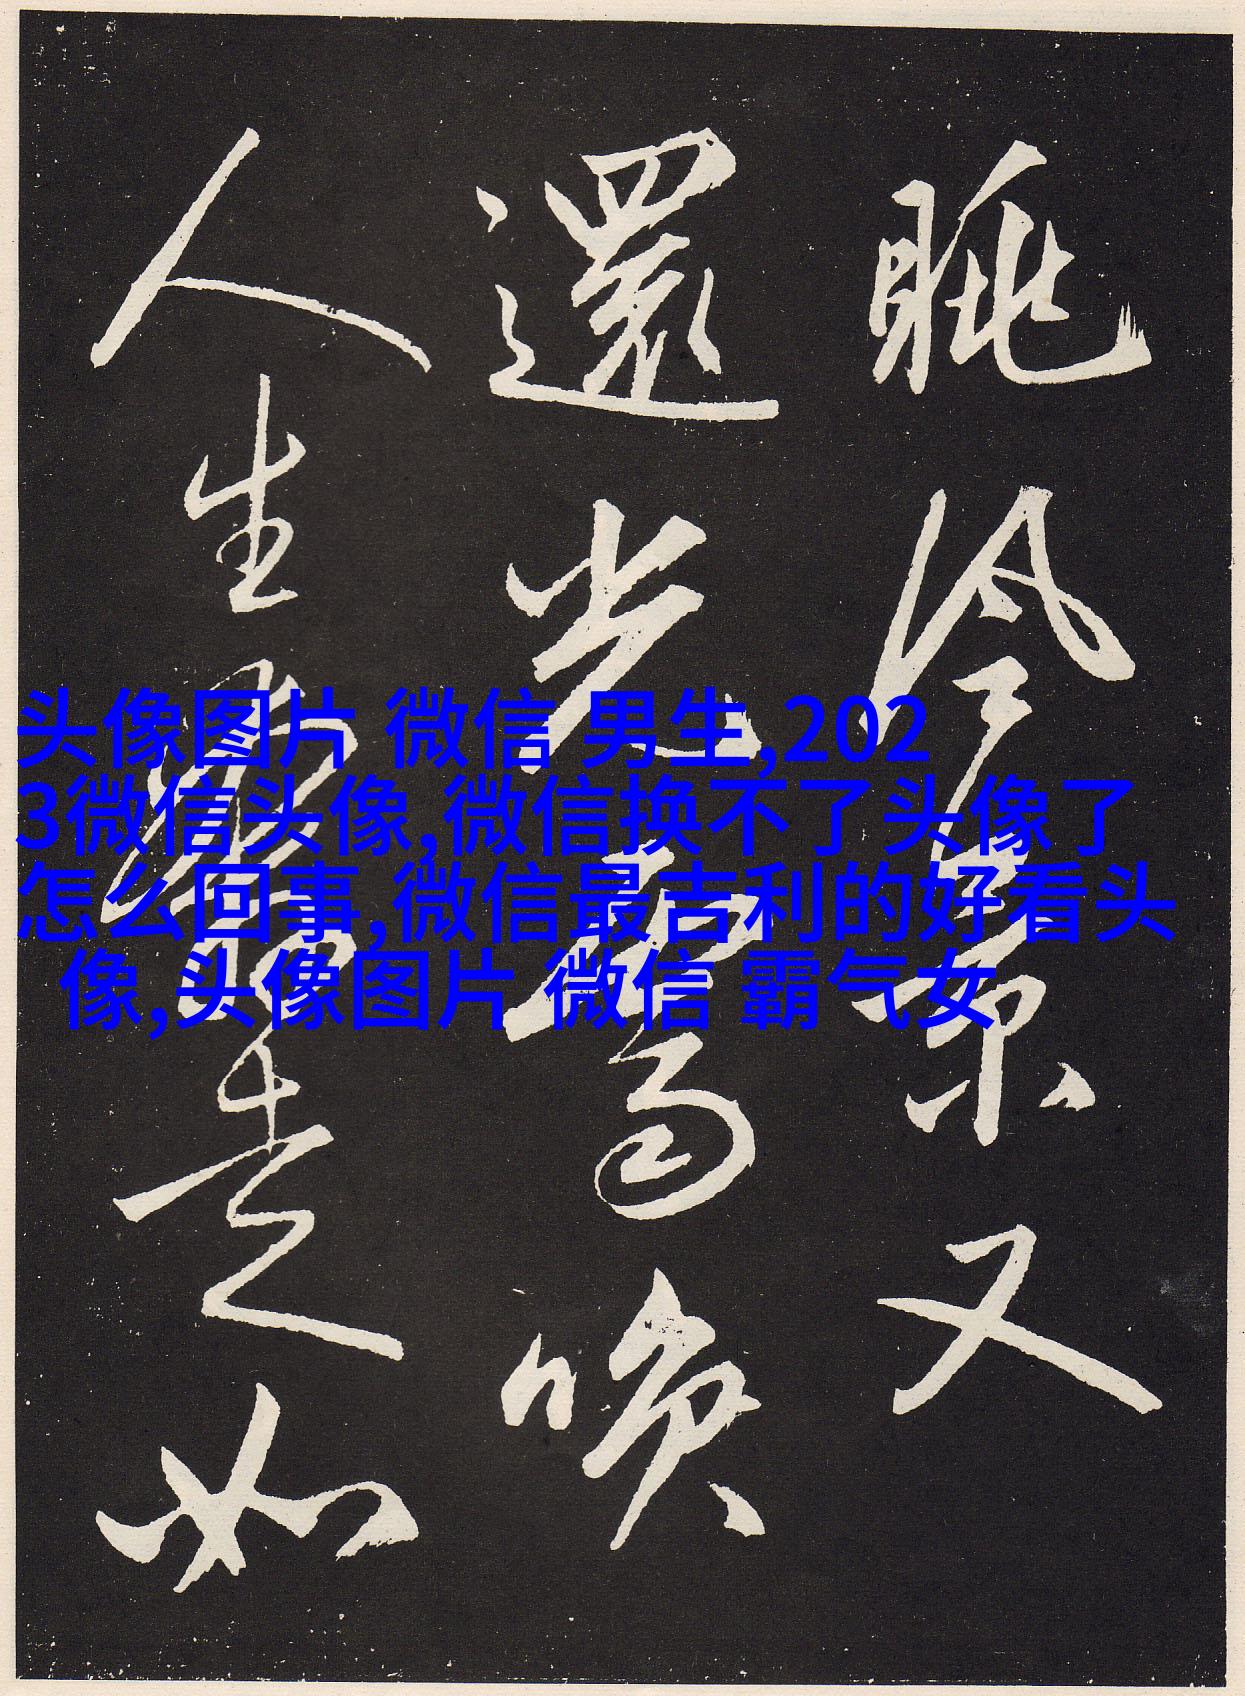 眺泠景又
還光喚
人生如
头像图片 微信 男生,202
3微信头像,微信换不了头像了
怎么回事,微信最吉利的好看头
像,头像图片 微信 霸气女